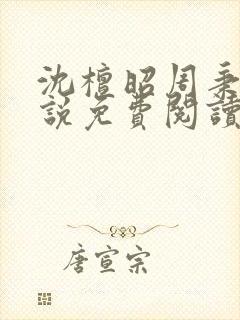 沈檀昭周秉
說免費閱讀
唐宣宗